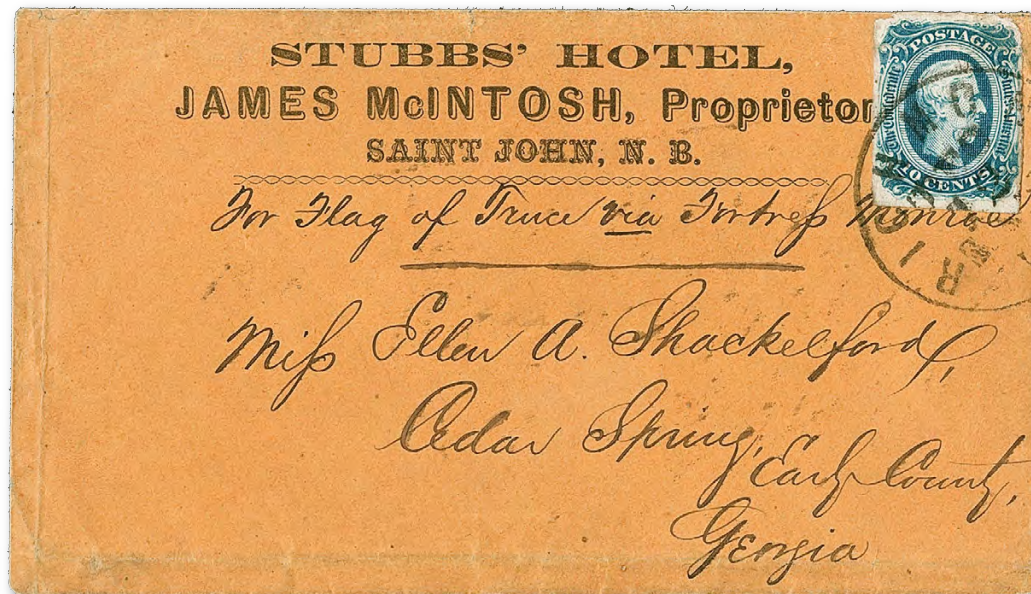 STUBBS' HOTEL,
JAMES McINTOSH, Proprietor
SAINT JOHN, N. B.
POSTAGE
The Confederate States of America
10 CENTS
For Flag of Truce via Fortress Monroe
Miss Ellen A. Shackelford,
Cedar Spring,
Early County,
Georgia